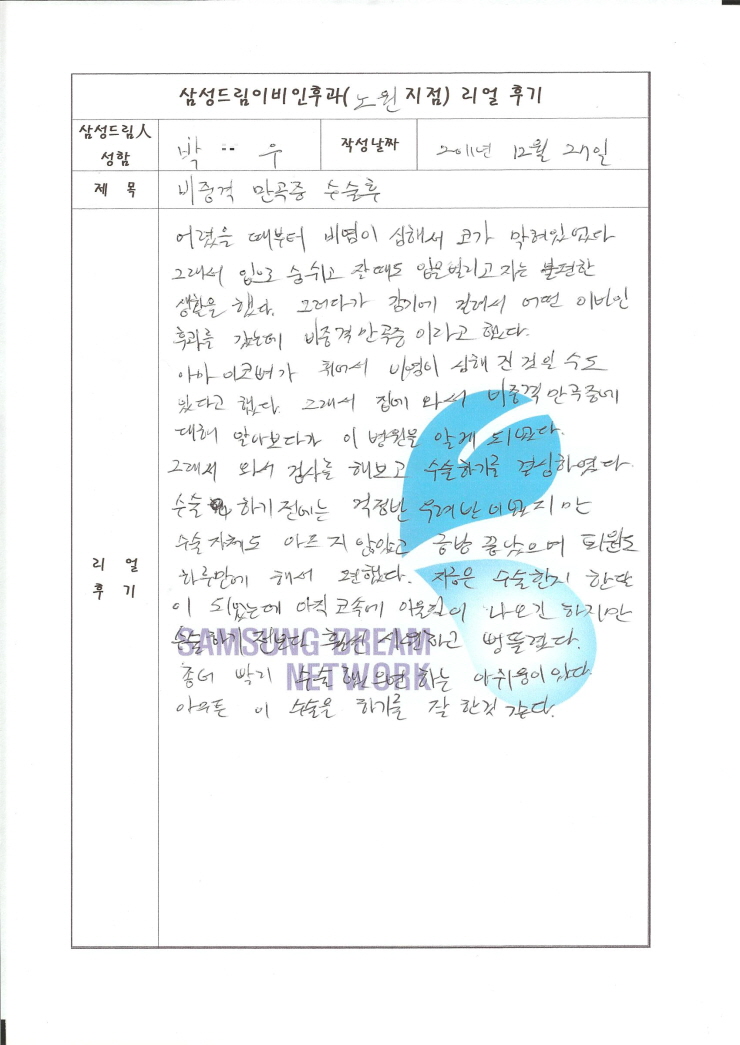 삼성드림이비인후과(노원지점) 리얼 후기
삼성드림人 성함
박 ·· 우
작성날짜
2011년 12월 27일
제 목
비중격 만곡증 수술후
리 얼 후 기
어렸을 때부터 비염이 심해서 코가 막혀있었다
그래서 입으로 숨쉬고 잘때도 입을벌리고 자는 불편한
생활을 했다. 그러다가 감기에 걸려서 어떤 이비인
후과를 갔는데 비중격만곡증 이라고 했다.
아마 이코뼈가 휘어서 비염이 심해 진 것일 수도
있다고 했다. 그래서 집에 와서 비중격만곡증에
대해 알아보다가 이 병원을 알게 되었다.
그래서 와서 검사를 해보고 수술하기를 결심하였다.
수술 하기 전에는 걱정반 우려반 이었지만
수술 자체도 아프지 않았고 금방 끝났으며 퇴원도
하루만에 해서 편했다. 지금은 수술한지 한달
이 되었는데 아직 코속에 이물질이 나오긴 하지만
수술하기 전보다 훨씬 시원하고 뻥뚫렸다.
좀더 빨리 수술했으면 하는 아쉬움이 있다.
아무튼 이 수술을 하기를 잘 한것 같다.
SAMSUNG DREAM
NETWORK